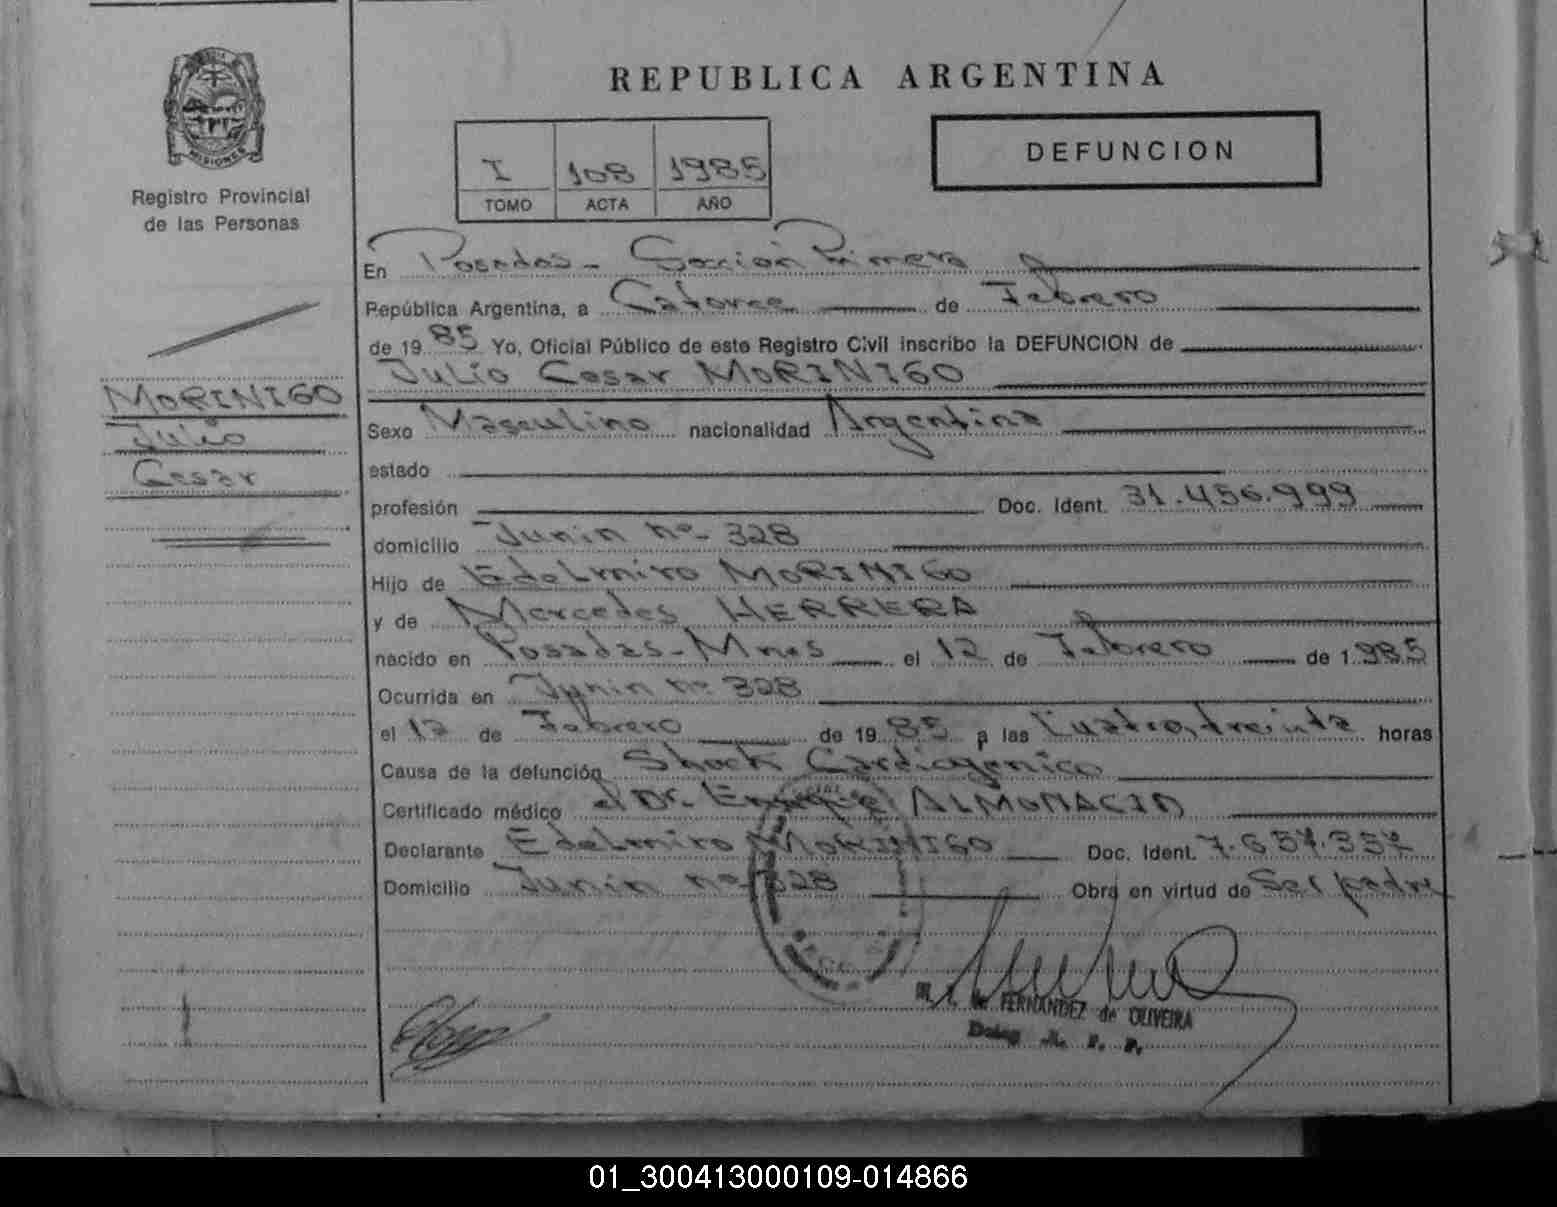 REPUBLICA ARGENTINA
MISIONES
Registro Provincial
de las Personas
I 108 1985
TOMO ACTA AÑO
DEFUNCION
MORINIGO
Julio
Cesar
En Posadas - Sección Primera
República Argentina, a Catorce de Febrero
de 1985 Yo, Oficial Público de este Registro Civil inscribo la DEFUNCION de
Julio Cesar MORINIGO
Sexo Masculino nacionalidad Argentina
estado
profesión Doc. Ident. 31.456.999
domicilio Junin nº- 328
Hijo de Edelmiro MORINIGO
y de Mercedes HERRERA
nacido en Posadas - Mnes el 12 de Febrero de 1.985
Ocurrida en Junin nº 328
el 12 de Febrero de 1985 a las Cuatro, treinta horas
Causa de la defunción Shock Cardiogénico
Certificado médico el Dr. Enrique ALMONACID
Declarante Edelmiro MORINIGO Doc. Ident. 7.657.357
Domicilio Junin nº 328 Obra en virtud de Ser padre
FERNANDEZ de OLIVEIRA
Deleg. R. P. P.
01_300413000109-014866